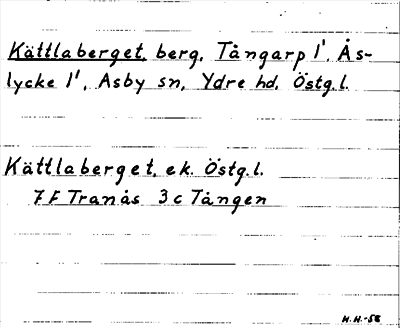 Kättlaberget, berg, Tångarp 1¹, Ås-
lycke 1¹, Asby sn, Ydre hd, Östg.l.
Kättlaberget, ek. Östg.l.
7 F Tranås 3 c Tången
H.H.-58